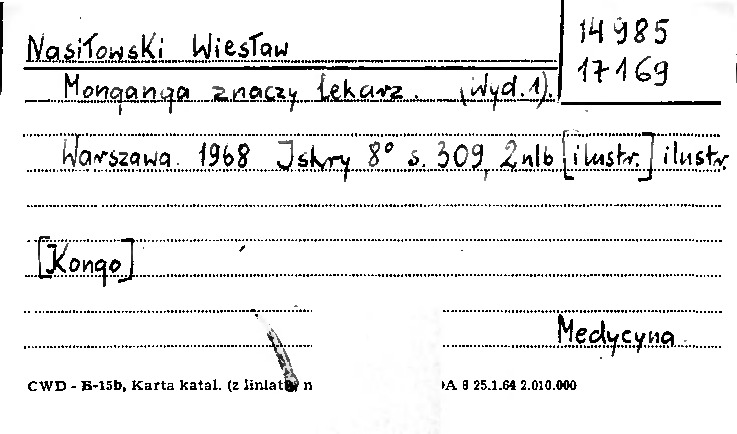 Nasiłowski Wiesław
14985
17169
Monganga znaczy lekarz. (Wyd.1).
Warszawa. 1968 Iskry 8° s. 309, 2nlb [ilustr.] ilustr.
[Kongo]
Medycyna
CWD - B-15b, Karta katal. (z liniat n A 8 25.1.64 2.010.000